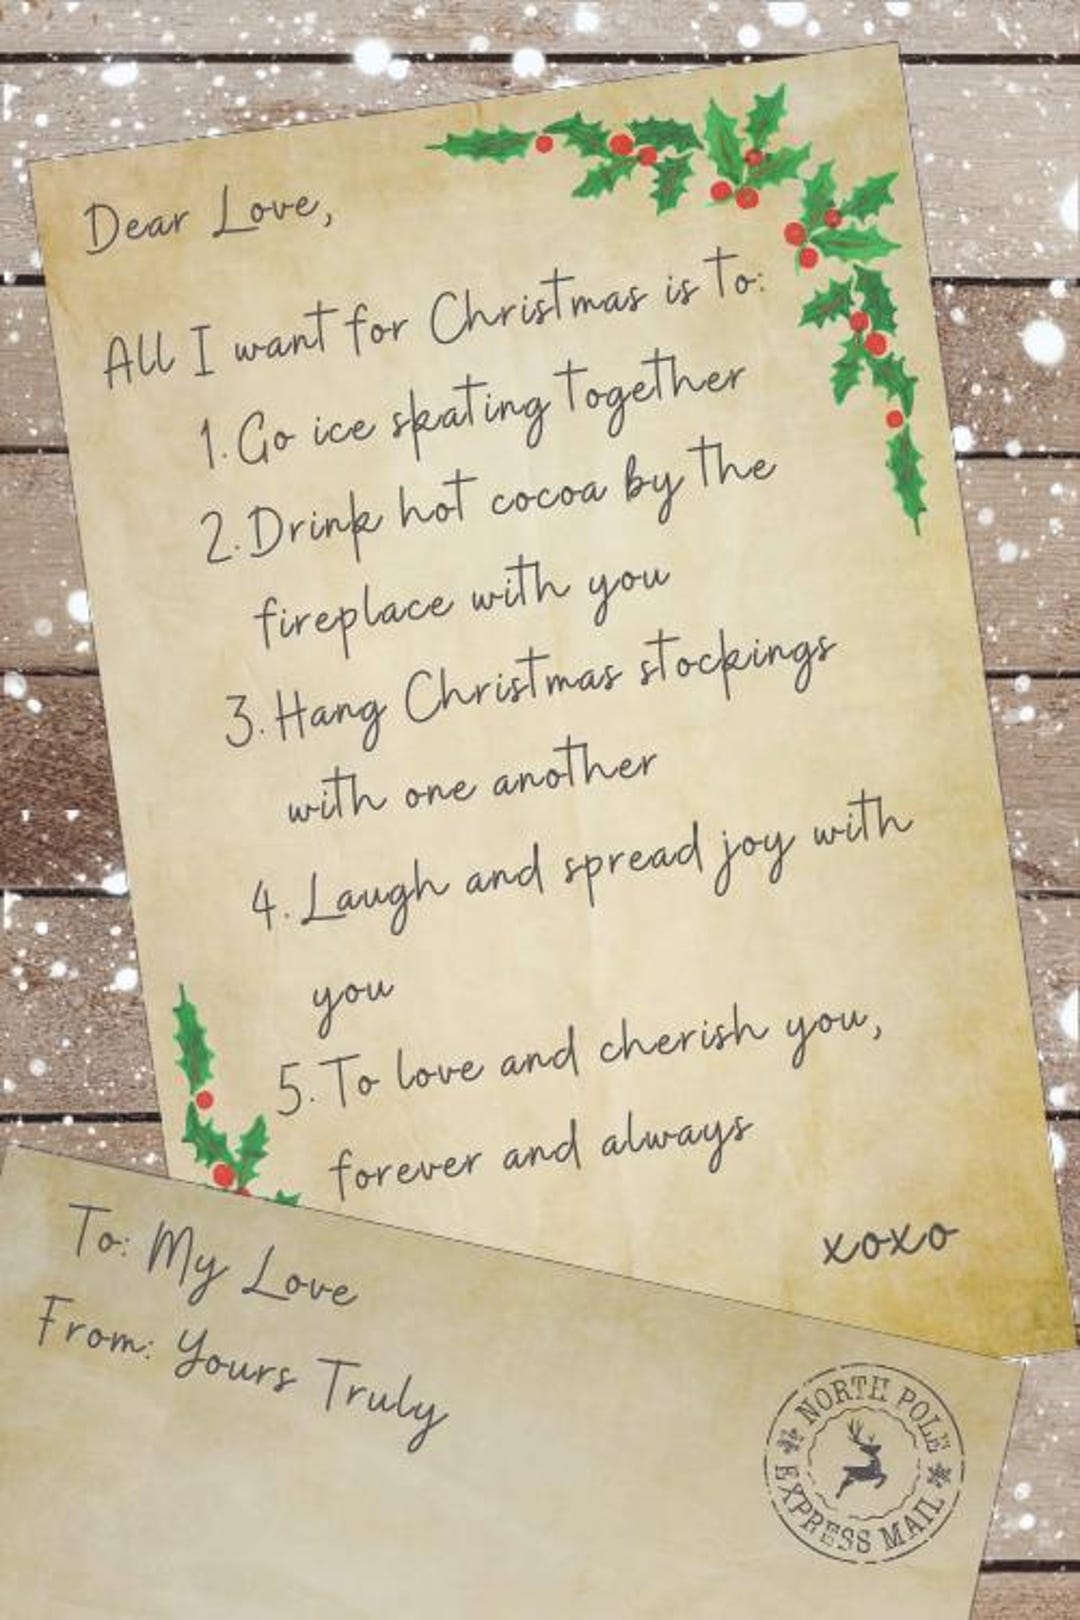 Dear Love,
All I want for Christmas is to:
1. Go ice skating together
2. Drink hot cocoa by the
fireplace with you
3. Hang Christmas stockings
with one another
4. Laugh and spread joy with
you
5. To love and cherish you,
forever and always
xoxo
To: My Love
From: Yours Truly
NORTH POLE
EXPRESS MAIL